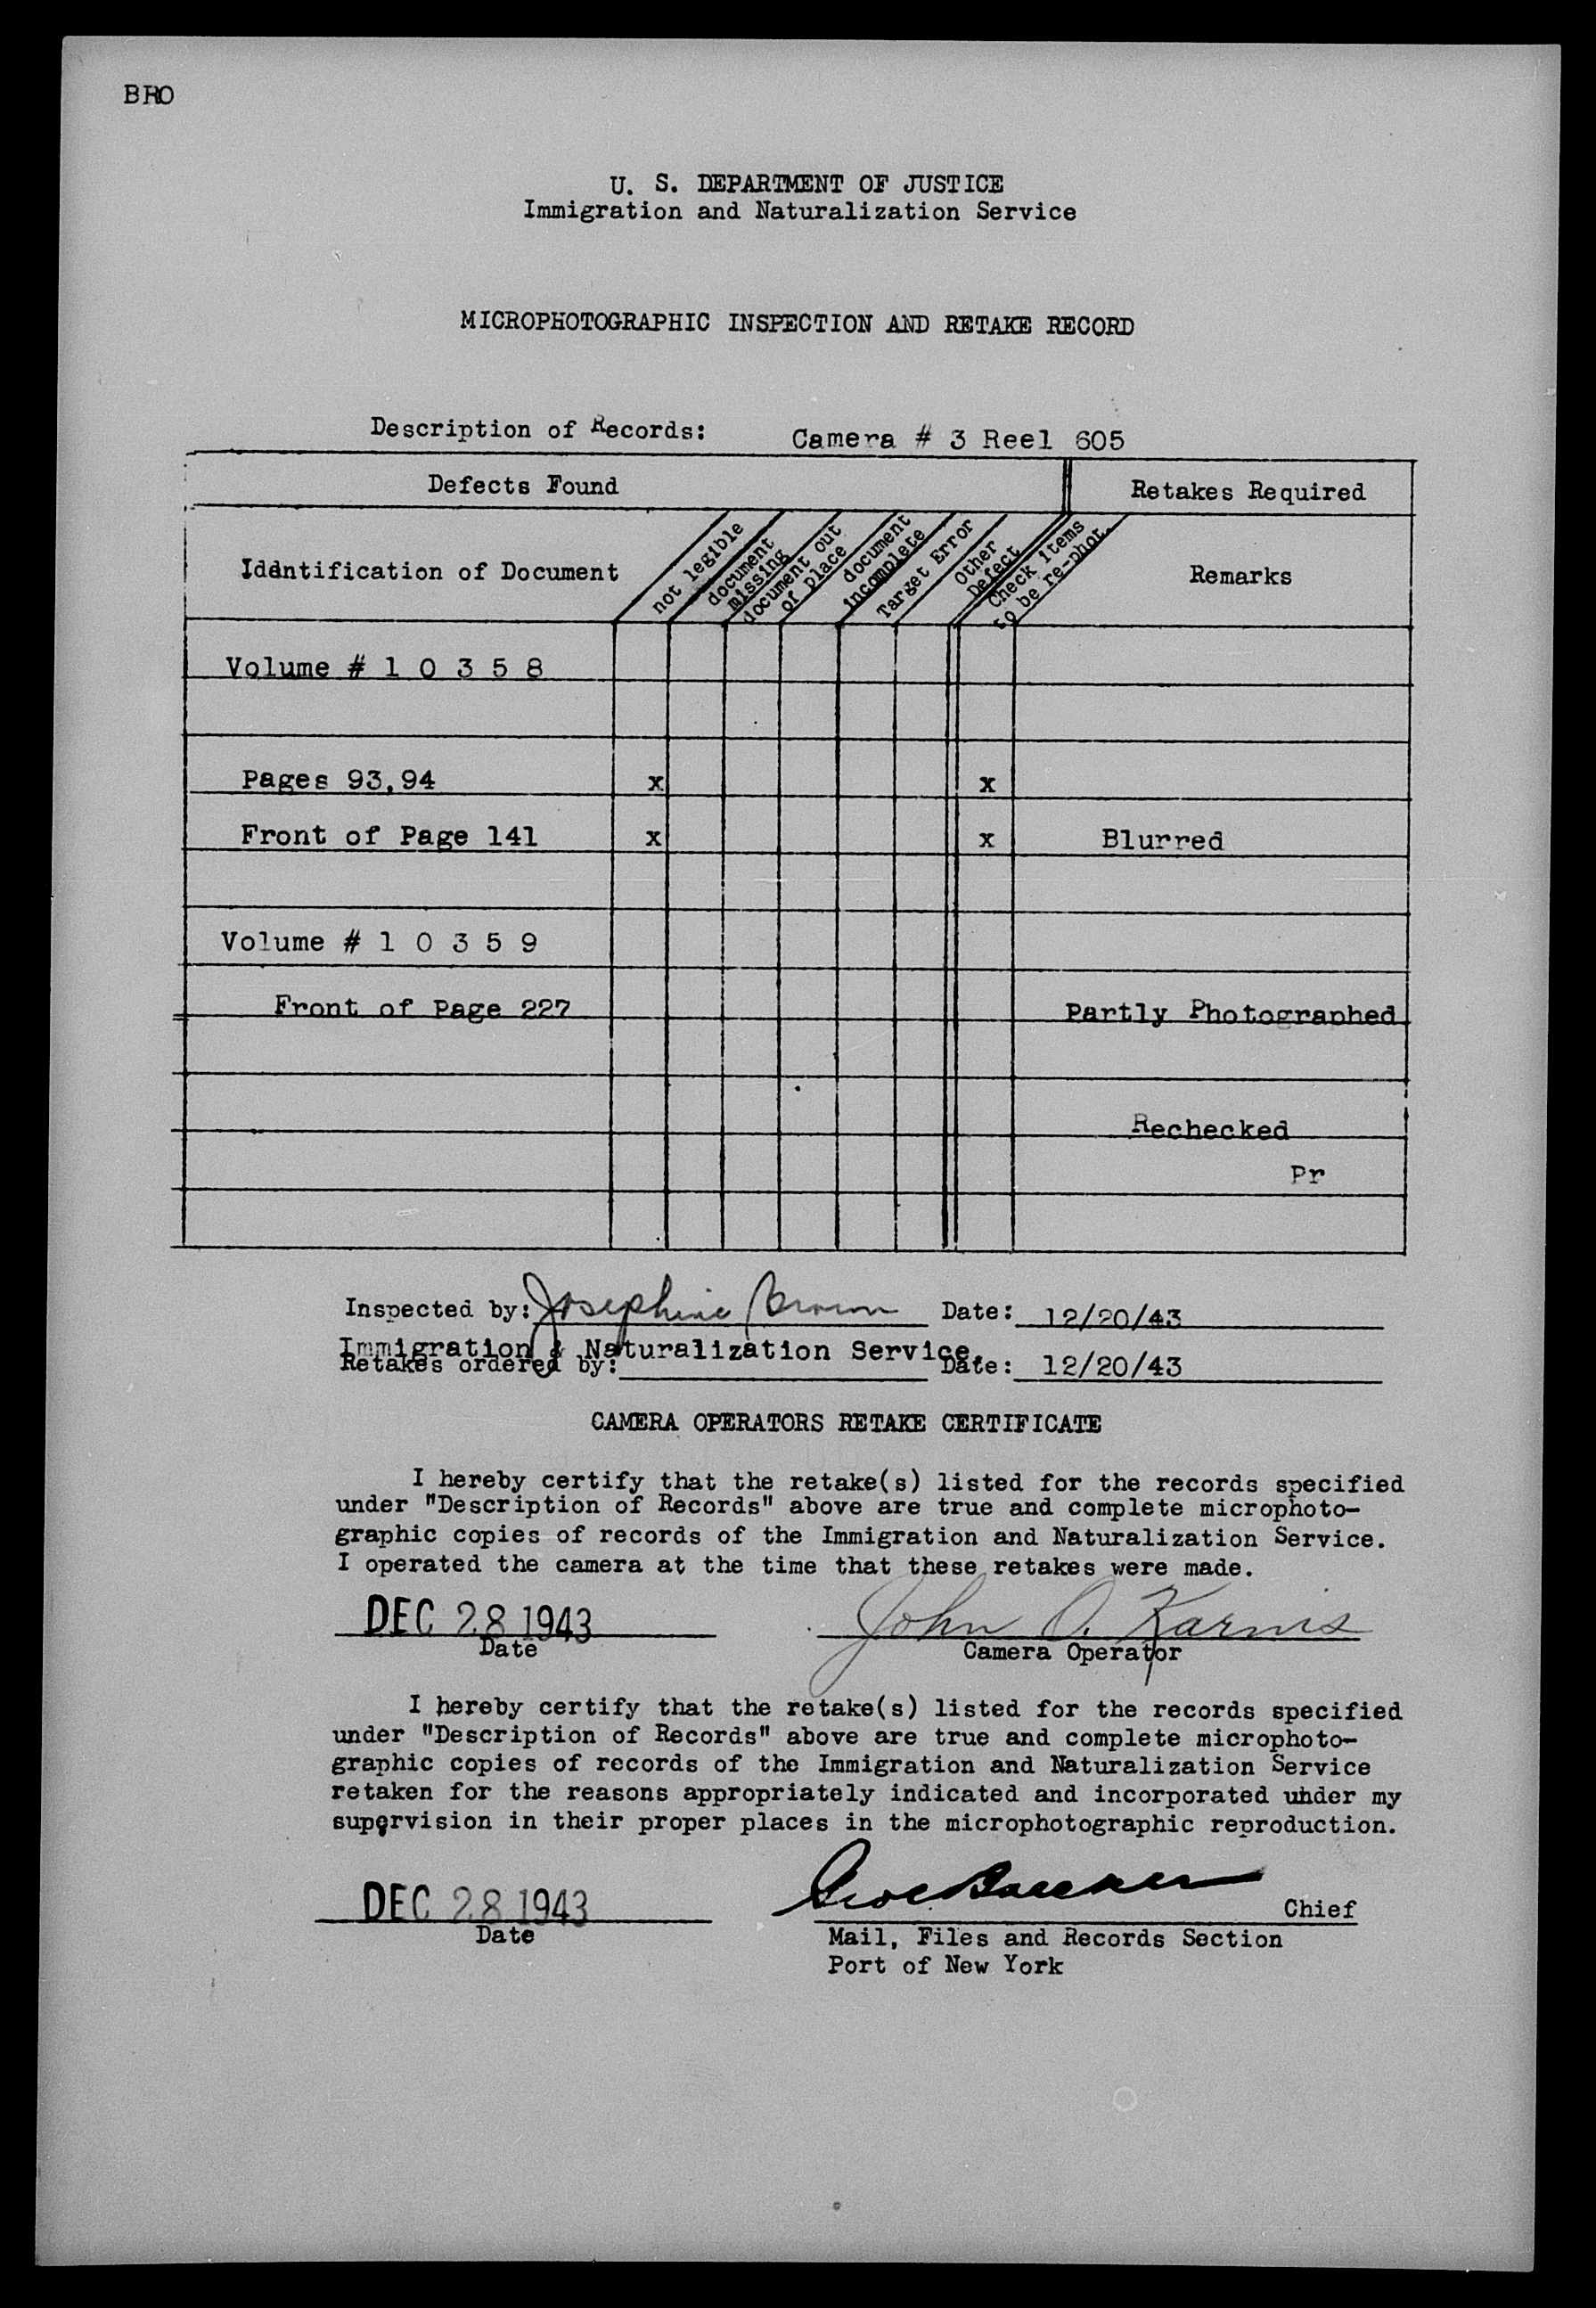 BRO
U. S. DEPARTMENT OF JUSTICE
Immigration and Naturalization Service
MICROPHOTOGRAPHIC INSPECTION AND RETAKE RECORD
Description of Records: Camera # 3 Reel 605
Defects Found Retakes Required
Iddntification of Document not legible document missing document out of place document incomplete Target Error Other Defect Check items to be re-phot. Remarks
Volume # 1 0 3 5 8
Pages 93,94 x x
Front of Page 141 x x Blurred
Volume # 1 0 3 5 9
Front of Page 227 Partly Photographed
Rechecked
Pr
Inspected by: Josephine Brown Date: 12/20/43
Immigration & Naturalization Service.
Retakes ordered by: Date: 12/20/43
CAMERA OPERATORS RETAKE CERTIFICATE
I hereby certify that the retake(s) listed for the records specified
under "Description of Records" above are true and complete microphoto-
graphic copies of records of the Immigration and Naturalization Service.
I operated the camera at the time that these retakes were made.
DEC 28 1943 John O. Karnis
Date Camera Operator
I hereby certify that the retake(s) listed for the records specified
under "Description of Records" above are true and complete microphoto-
graphic copies of records of the Immigration and Naturalization Service
retaken for the reasons appropriately indicated and incorporated under my
supervision in their proper places in the microphotographic reproduction.
DEC 28 1943 Chief
Date Mail, Files and Records Section
Port of New York